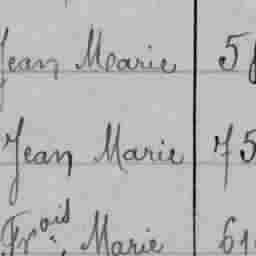 Jean Marie 58
Jean Marie 75
Frоis, Marie 61